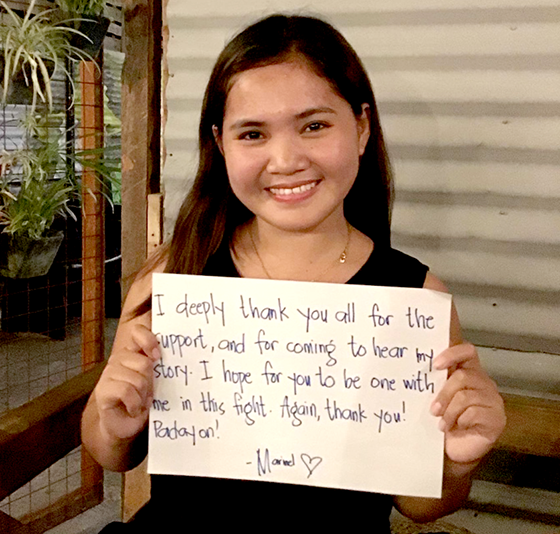 I deeply thank you all for the
support, and for coming to hear my
story. I hope for you to be one with
me in this fight. Again, thank you!
Padayon!
- Marinel ♡